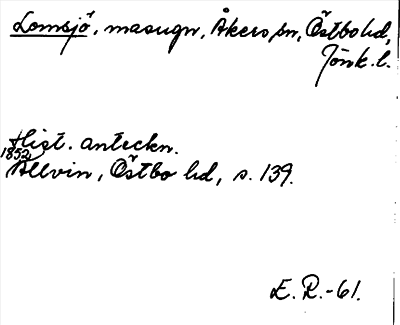 Lomsjö, masugn, Åkers sn, Östbo hd,
Jönk. l.
Hist. anteckn.
1852
Allvin, Östbo hd, s. 139.
E. R. -61.